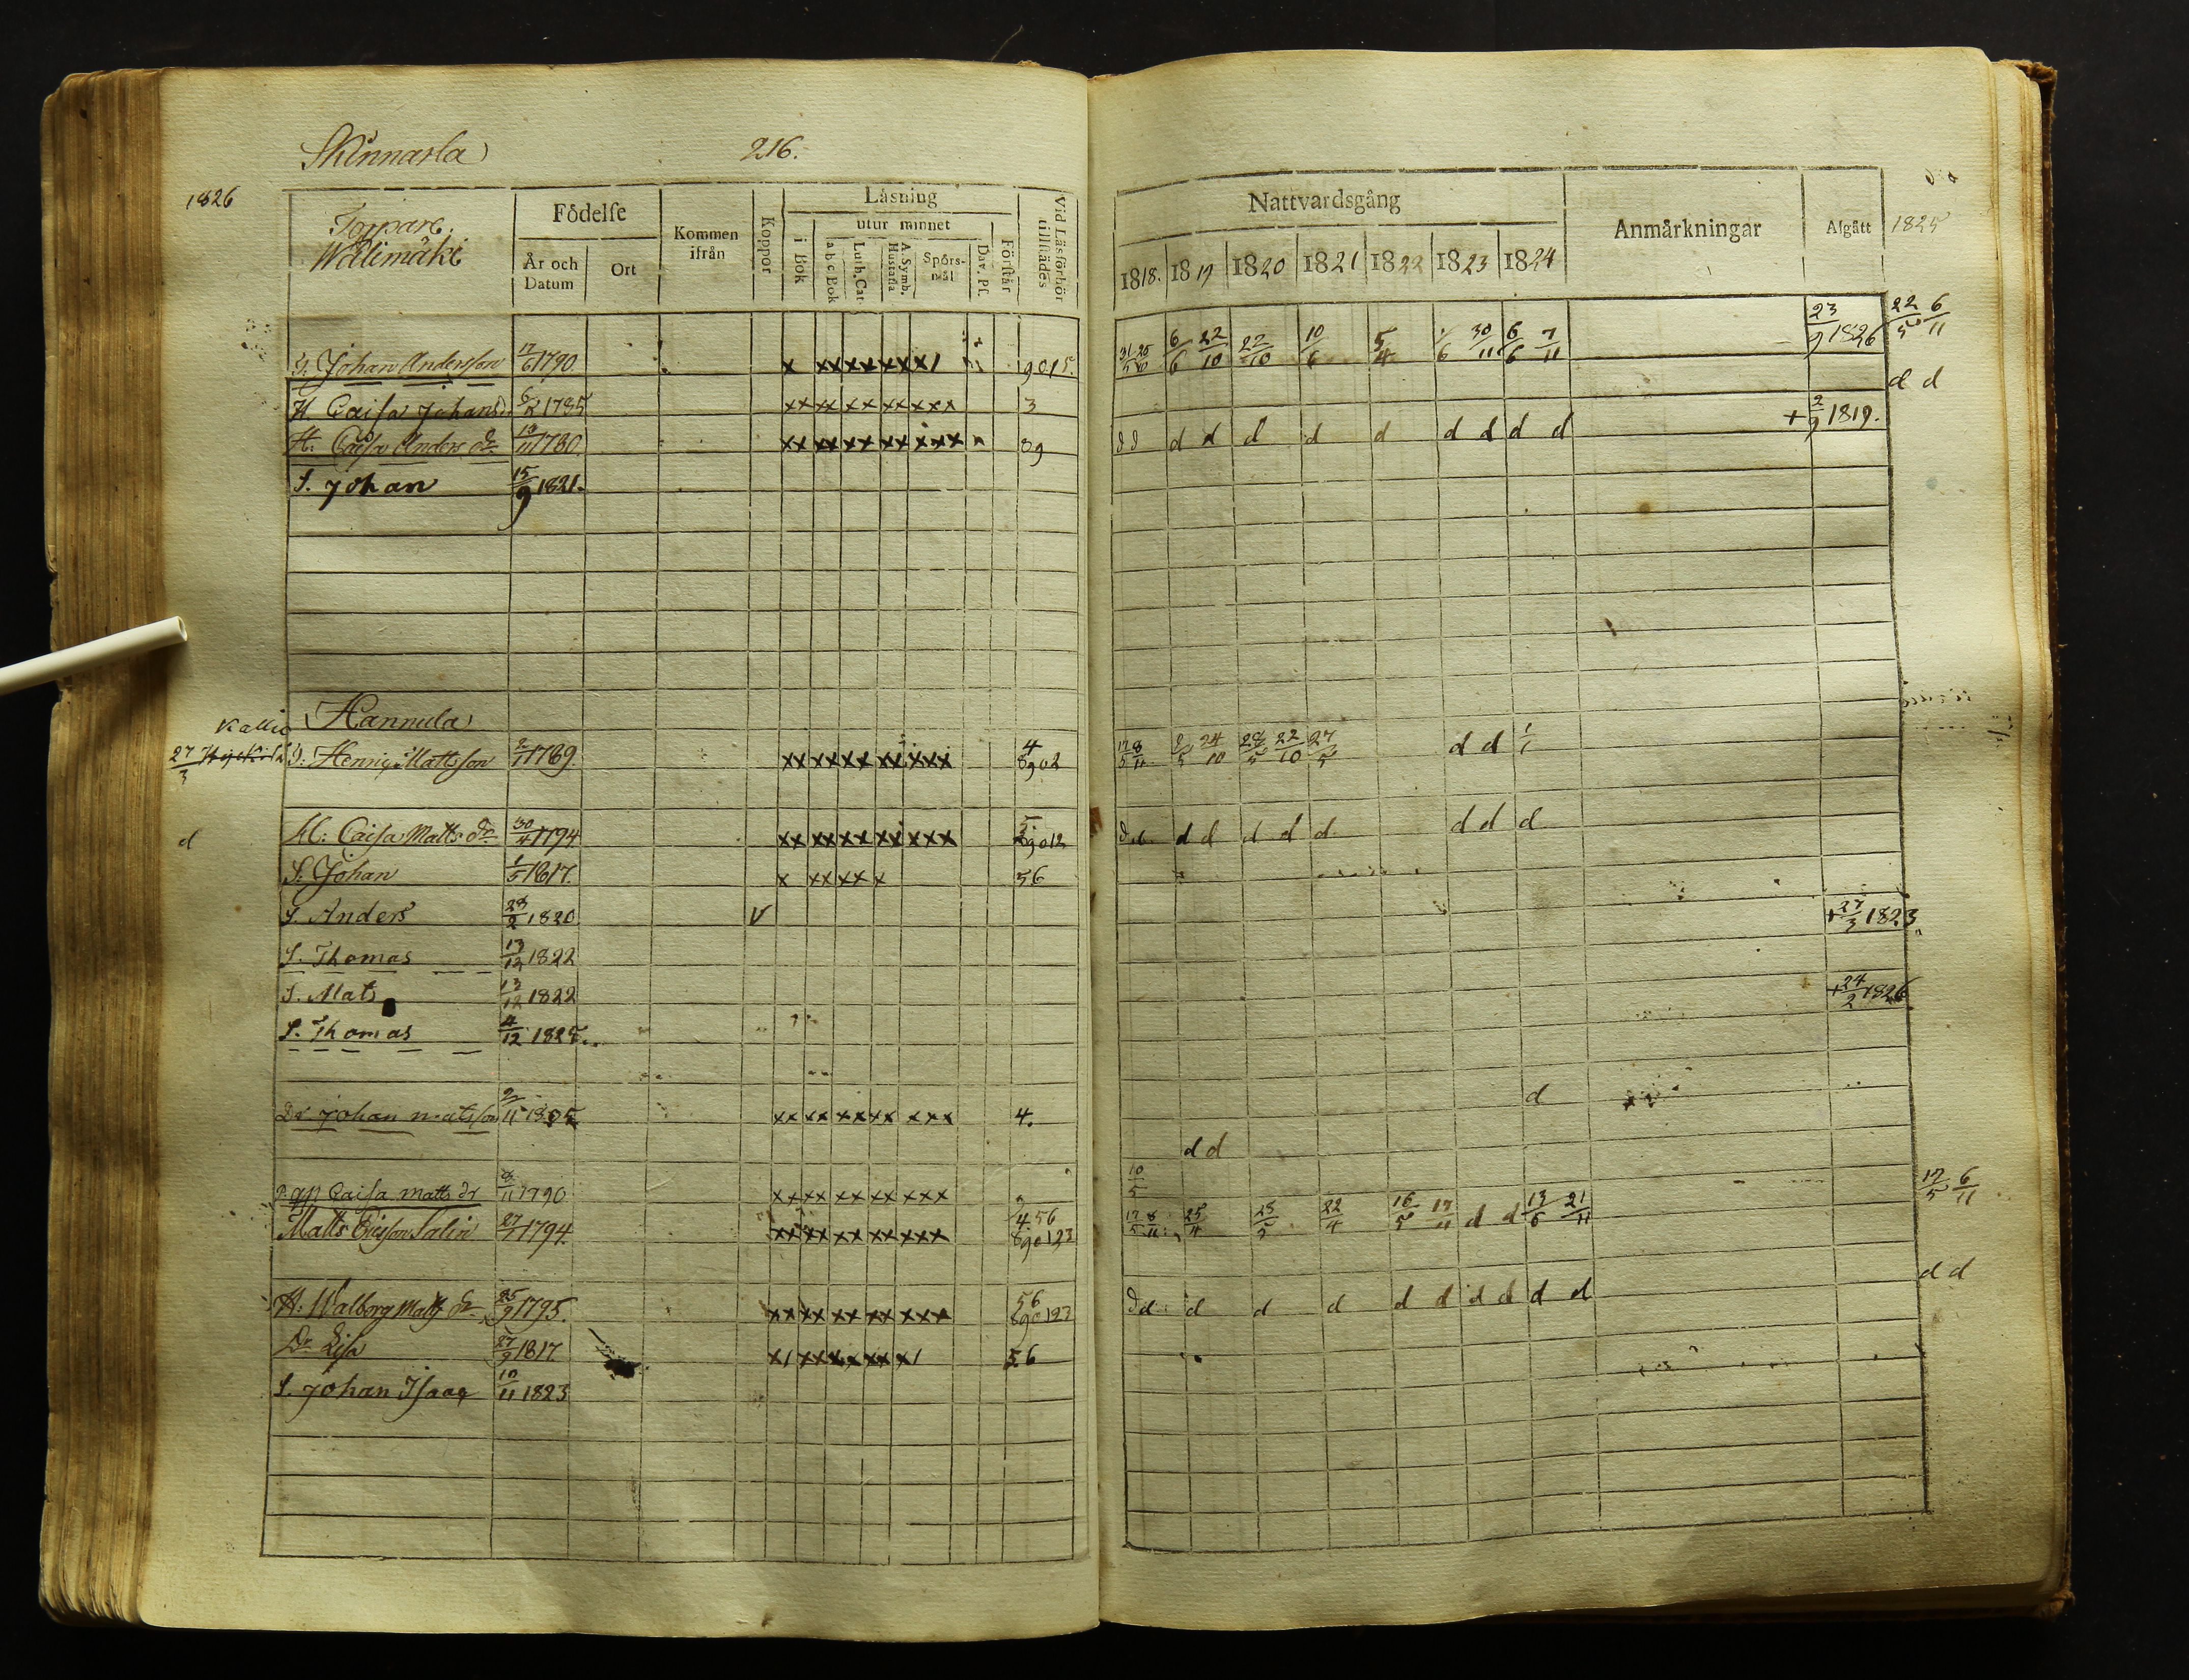 Skinnarla 216.
1826
Torpare
Wälimäki
Födelse
År och Datum
Ort
Kommen ifrån
Koppor
Läsning
utur minnet
i Bok
a b c Bok
Luth. Cat
A. Symb. Hustafla
Spörs-mål
Dav. Ps.
Förstår
Vid Läsförhör tillstädes
Johan Andersson 17/6 1790. x xx xx xx x1 9015.
H. Caisa Johansd. 6/2 1785 xx xx xx xx xxx 3
H. Caisa Anders dr 1780. xx xx xx xx xxx 89
S. Johan 15/9 1821.
Kallio Hannula
27/3 Henric Mattsson 2/1 1769. xx xx xx xx xxx 4 8902
d H: Caisa Matts dr 30/4 1794 xx xx xx xx xxx 5 89012
S. Johan 1/5 1817. x xx xx x 56
S. Anders 28/2 1820 v
S. Thomas 13/12 1822
S. Mats 13/12 1822
S. Thomas 4/12 1825.
Dr Johan matsson 2/11 1805 xx xx xx xx xxx 4.
Caisa matts dr 1790 xx xx xx xx xxx
Matts Ericsson Salin 27/1 1794. xx xx xx xx xxx 4.56 890123
H. Walborg Matts dr 25/9 1795. xx xx xx xx xxx 56 890123
Dr Lisa 27/9 1817 x1 xx xx xx x1 56
S. Johan Isaac 10/11 1823
Nattvardsgång
Anmärkningar
Afgått
1825
1818. 1819 1820 1821 1822 1823 1824
31/5 25/10 6/6 22/10 22/10 10/6 5/4 30/11 6/6 7/11 23/9 1826 22/5 6/11
d d
+ 2/9 1819.
d d d d d d d d d d d
17/5 8/11 24/10 28/5 22/10 27/5 d d 1/1
d d d d d d d d
+ 27/3 1823
+ 24/2 1826
d
d d
10/5
17/5 8/11 25/4 25/5 22/4 16/5 17/11 d d 13/6 21/11 17/5 6/11
d d d d d d d d d d d d d